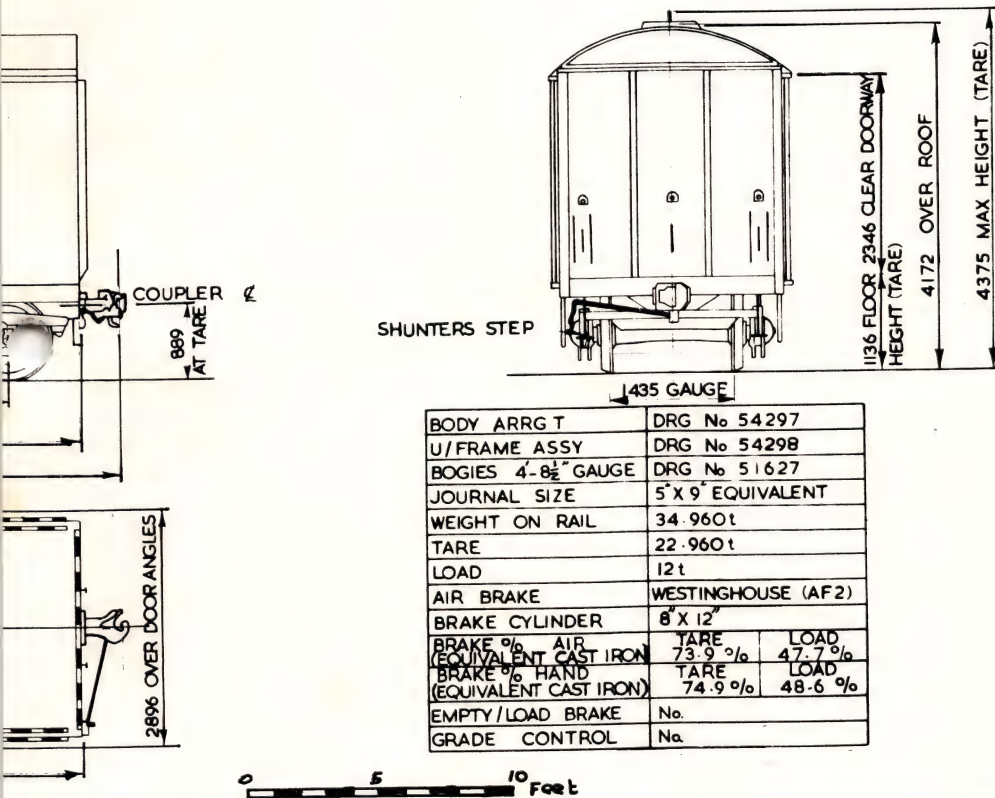 COUPLER ℄
889
AT TARE
2896 OVER DOOR ANGLES
SHUNTERS STEP
1435 GAUGE
1136 FLOOR 2346 CLEAR DOORWAY
HEIGHT (TARE)
4172 OVER ROOF
4375 MAX HEIGHT (TARE)
BODY ARRG T DRG No 54297
U/FRAME ASSY DRG No 54298
BOGIES 4'-8½" GAUGE DRG No 51627
JOURNAL SIZE 5" X 9" EQUIVALENT
WEIGHT ON RAIL 34.960t
TARE 22.960t
LOAD 12t
AIR BRAKE WESTINGHOUSE (AF2)
BRAKE CYLINDER 8" X 12"
BRAKE % AIR TARE LOAD
(EQUIVALENT CAST IRON) 73.9 % 47.7 %
BRAKE % HAND TARE LOAD
(EQUIVALENT CAST IRON) 74.9 % 48.6 %
EMPTY/LOAD BRAKE No.
GRADE CONTROL No.
0 5 10 Feet